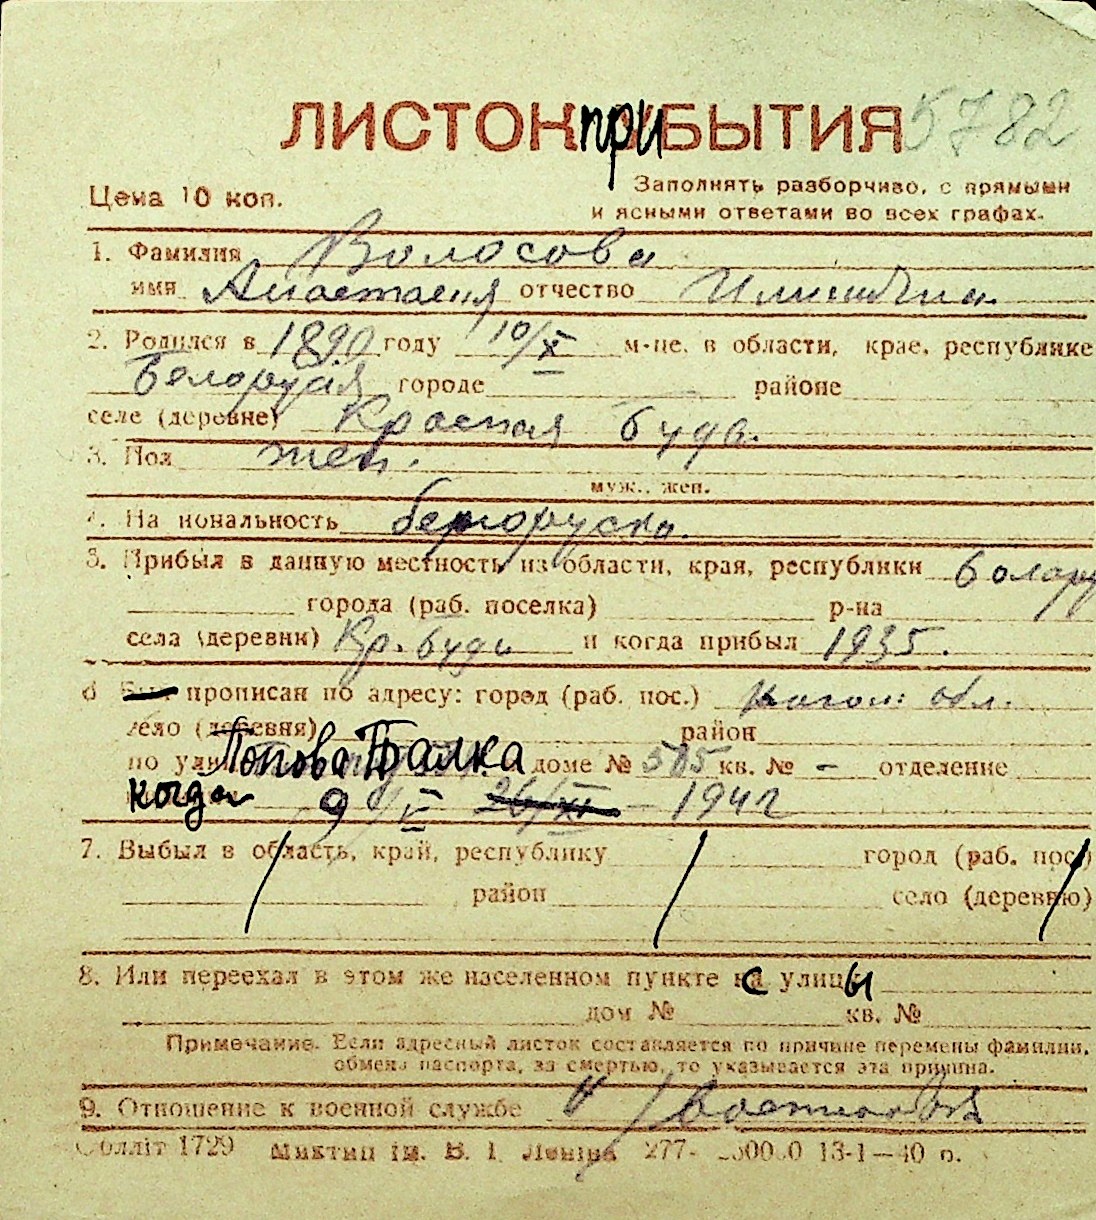 ЛИСТОК при БЫТИЯ 5782
Цена 10 коп.
Заполнять разборчиво, с прямыми
и ясными ответами во всех графах.
1. Фамилия Волосова
имя Анастасия отчество
2. Родился в 1890 году 10/X м-це, в области, крае, республике
Белорусия городе районе
селе (деревне) Красная буда.
3. Пол жен.
муж., жен.
4. На иональность белоруска.
5. Прибыл в данную местность из области, края, республики
города (раб. поселка) р-на
села (деревни) Кр. буди и когда прибыл 1935.
6 прописан по адресу: город (раб. пос.) обл.
село (деревня) район
по ули Попова Балка доме № 505 кв. № – отделение
когда 9/V 26/XI – 1942
7. Выбыл в область, край, республику город (раб. пос.)
район село (деревню)
8. Или переехал в этом же населенном пункте с улицы
дом № кв. №
Примечание. Если адресный листок составляется по причине перемены фамилии,
обмена паспорта, за смертью, то указывается эта причина.
9. Отношение к военной службе
Облліт 1729 ім. В. І. Леніна 277- 13-1—40 р.